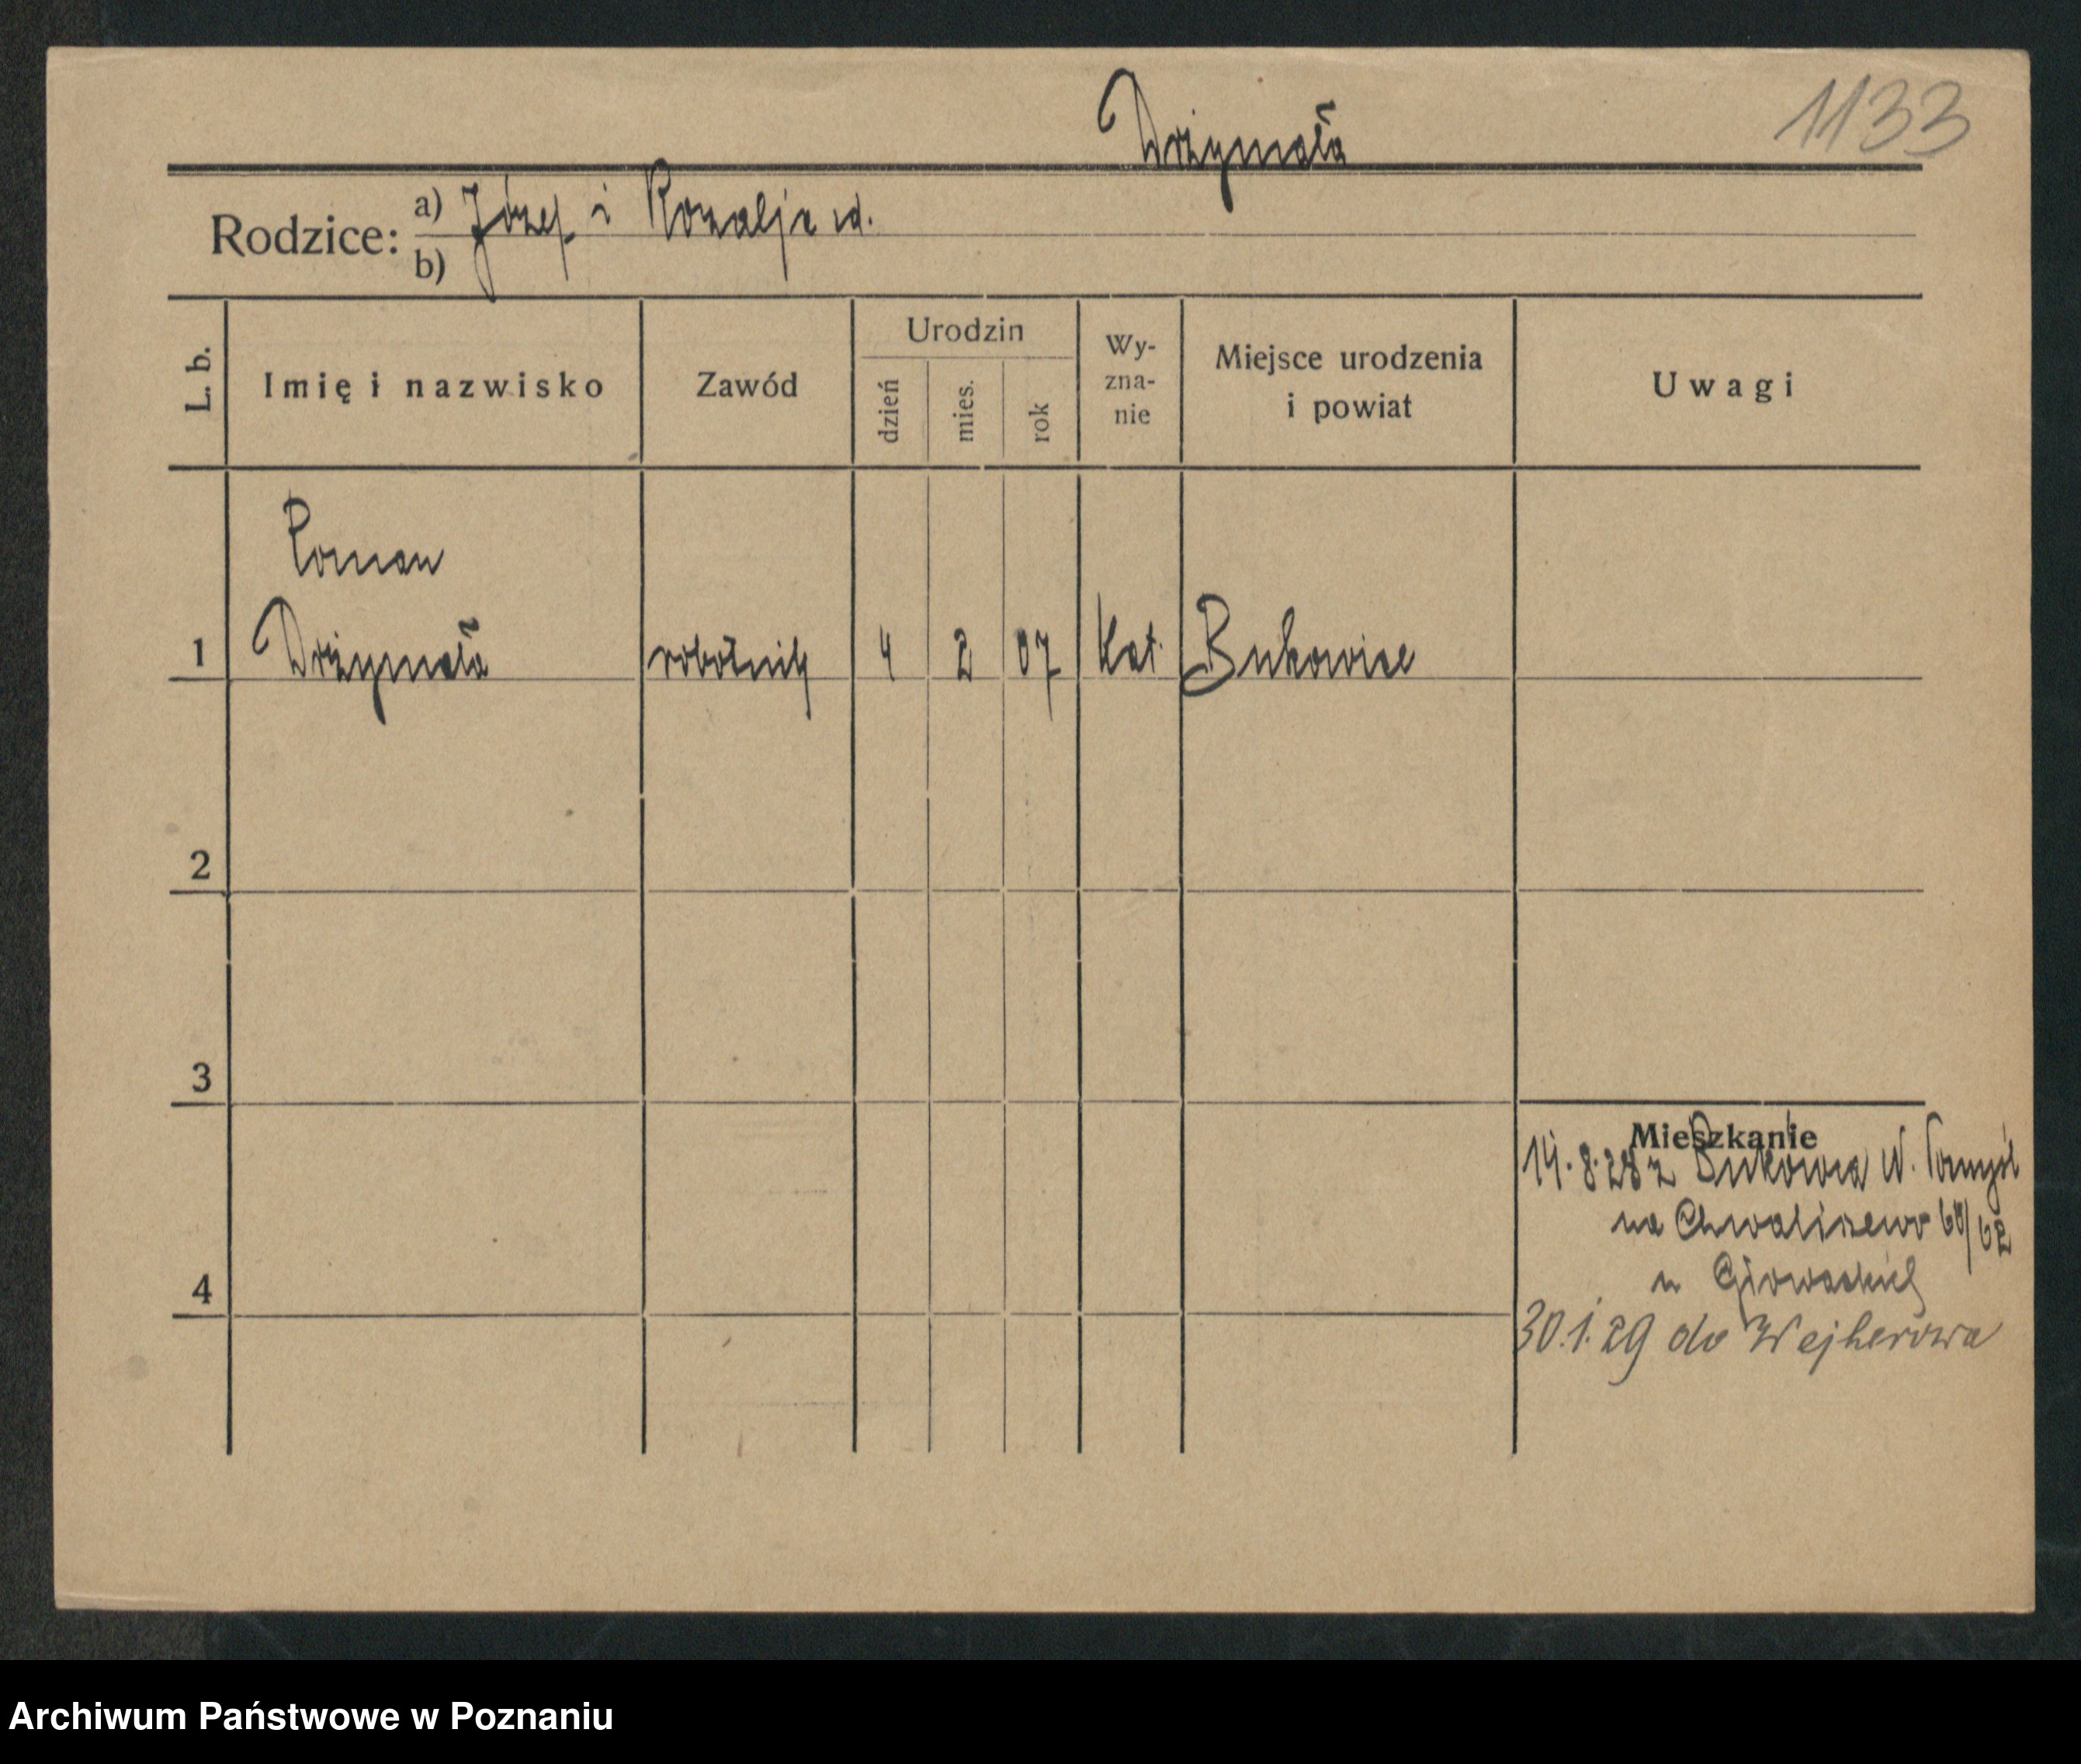 Drzymała
1133
Rodzice: a) Józef i Rozalja
b)
L. b. Imię i nazwisko Zawód Urodzin dzień mies. rok Wy-zna-nie Miejsce urodzenia i powiat Uwagi
Roman
1 Drzymała robotnik 4 2 07 kat. Bukowiec
2
3
Mieszkanie
14.8.28 z Bukowca N. Tomyśl
na Chwaliszewo 60/62
4
u Głowackich
30.1.29 do Wejherowa
Archiwum Państwowe w Poznaniu